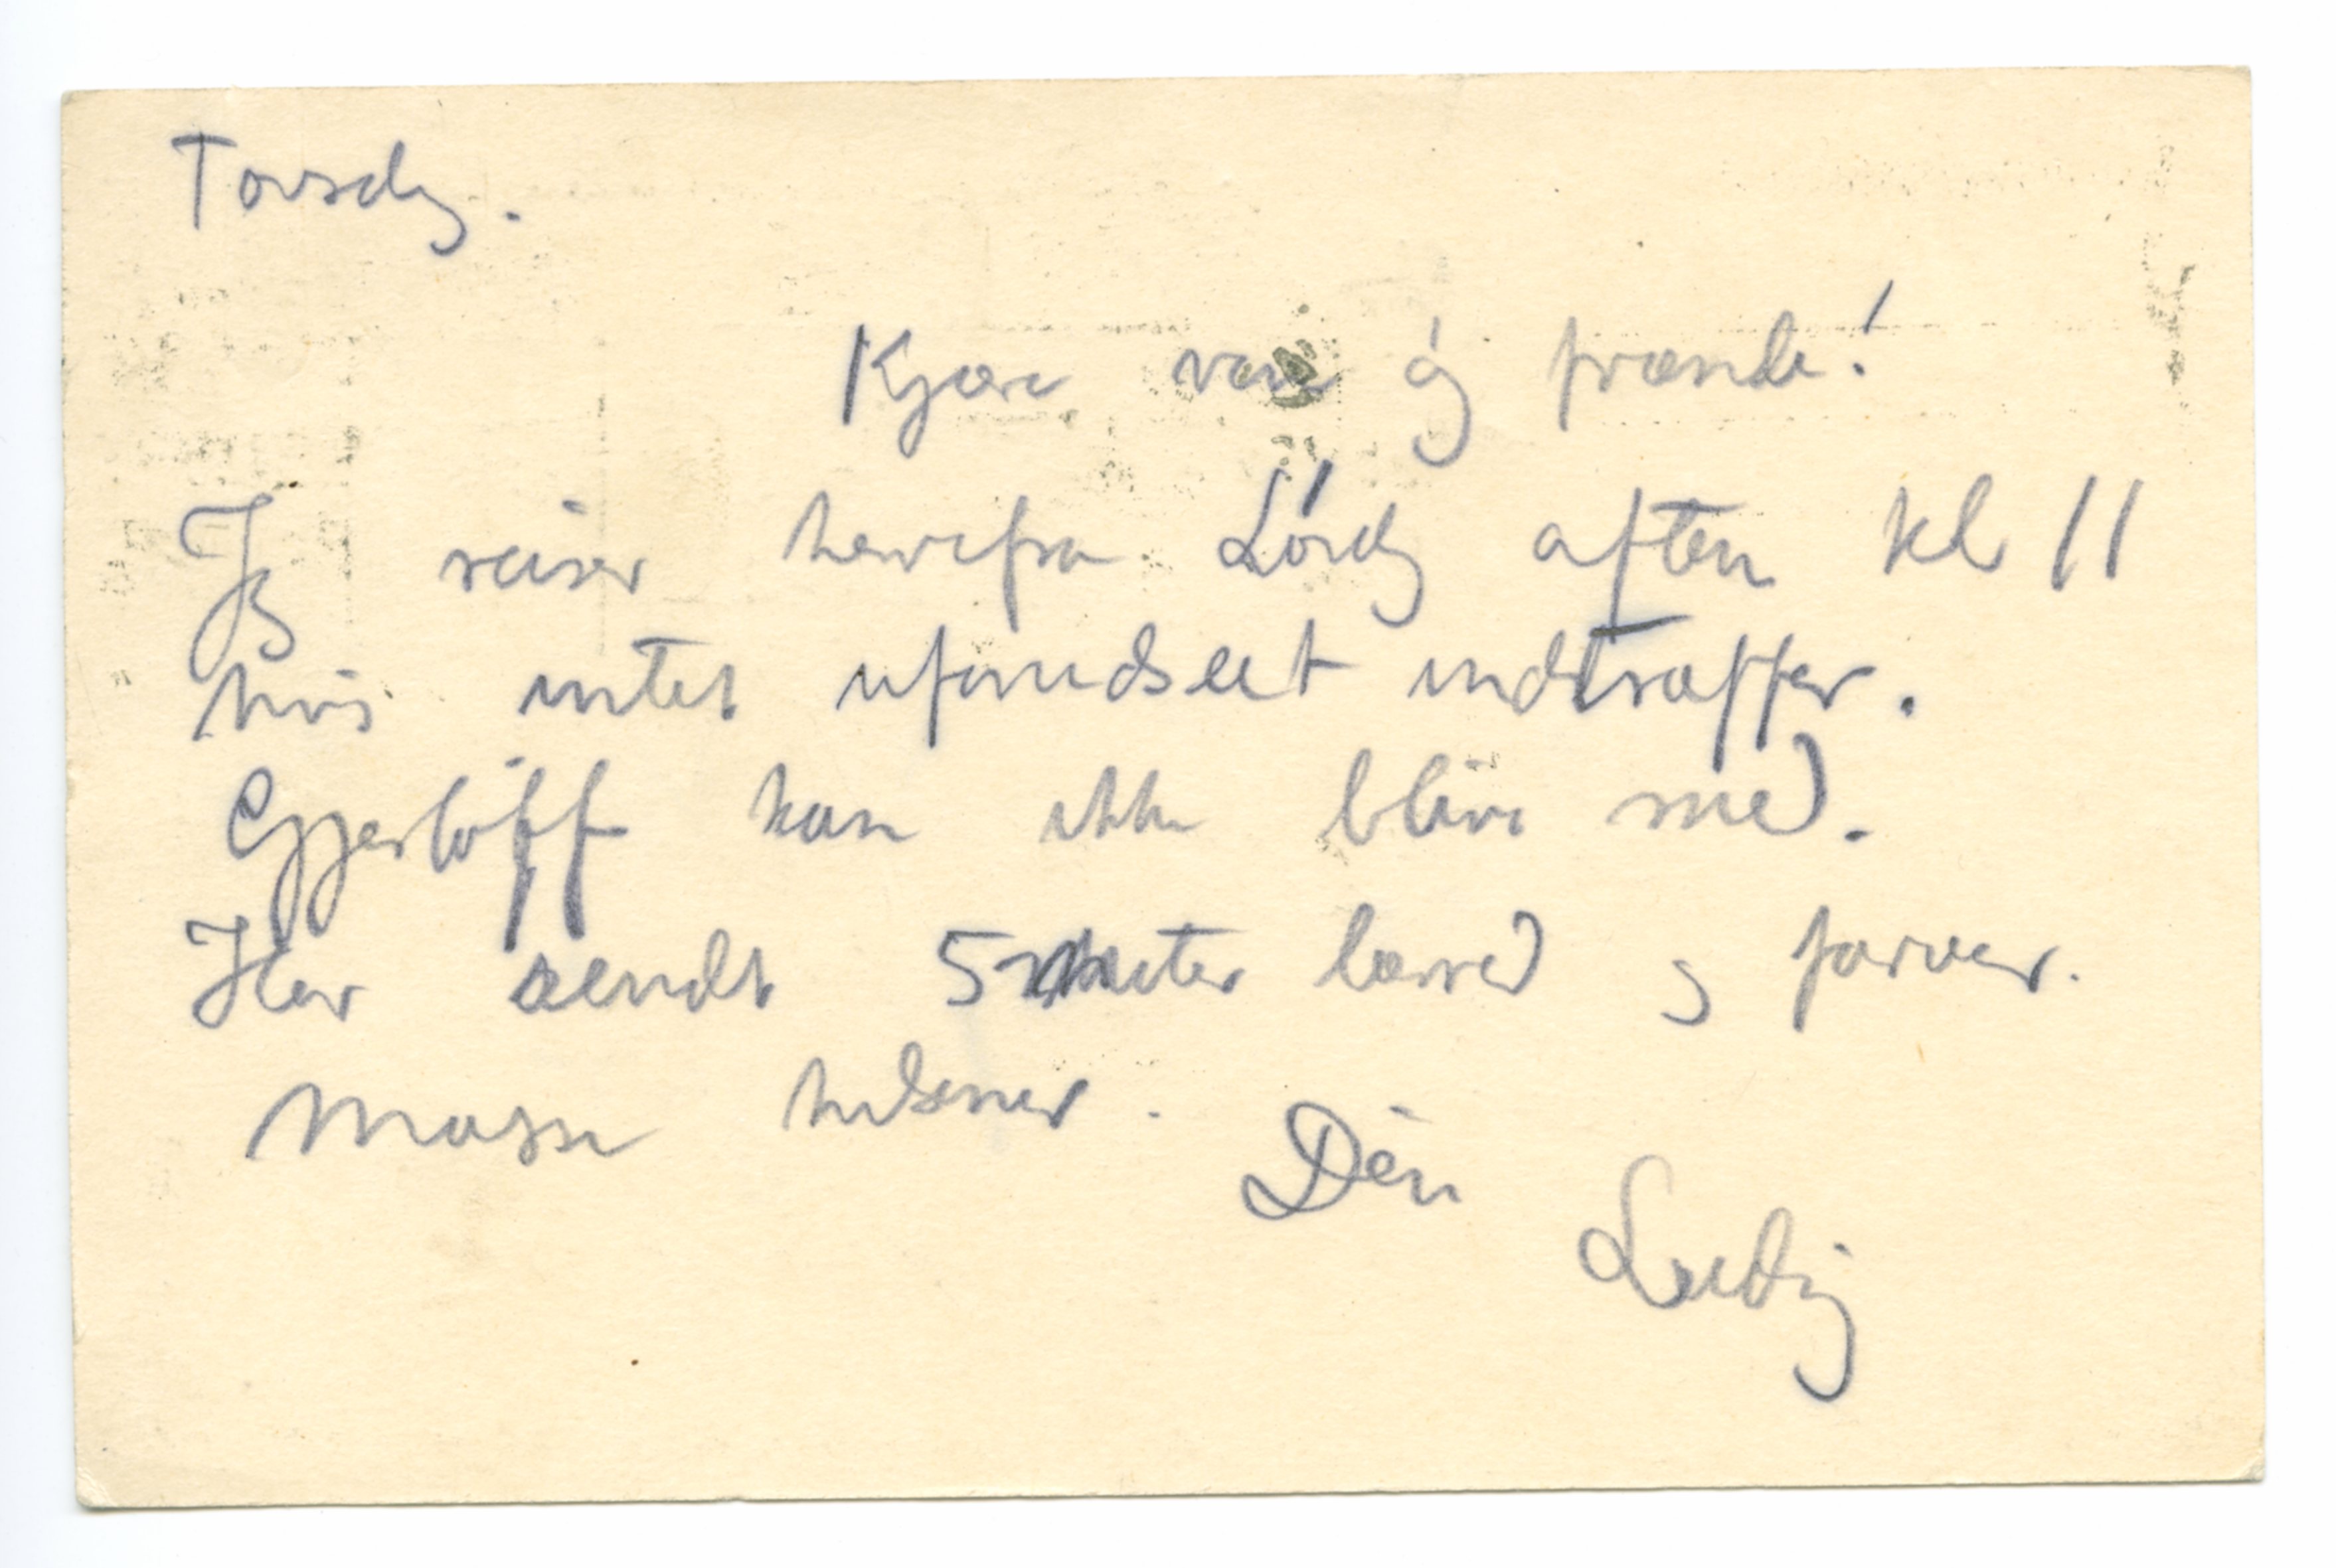 Torsdag.
Kjære ven og frænde!
Jeg reiser herrefra Lördag aften kl 11
hvis intet uforudseet indtræffer.
Gjerløff kan ikke blive med.
Har sendt 5 meter lærred og farver.
Masse hilsener.
Din
Ludvig